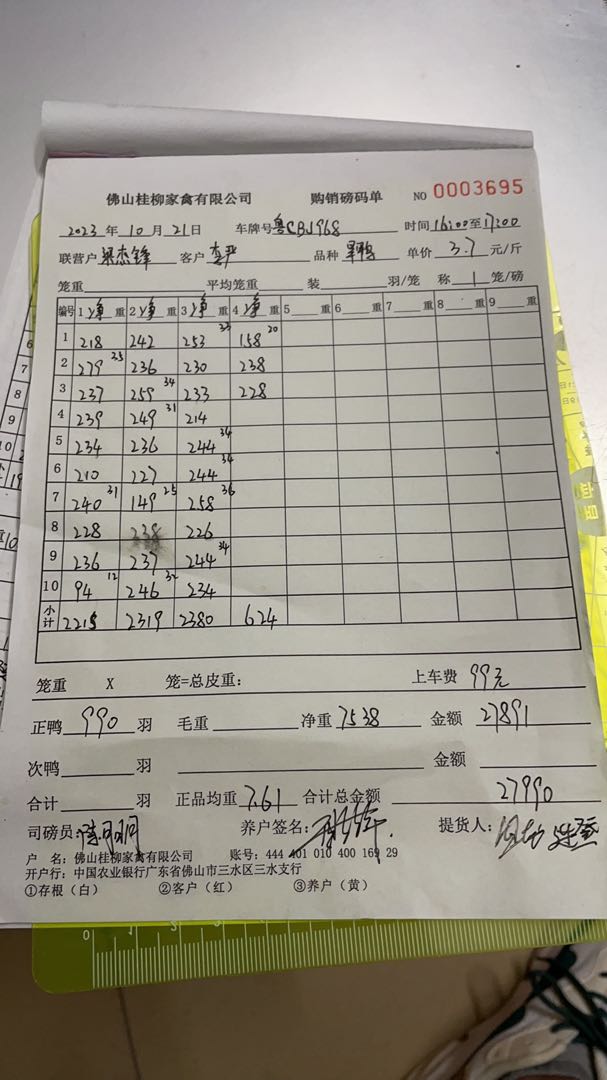 佛山桂柳家禽有限公司 购销磅码单 NO 0003695
2023年10月21日 车牌号粤CBJ968 时间16:00至17:00
联营户 梁杰锋 客户 品种 单价 3.7 元/斤
笼重 平均笼重 装 羽/笼 称 1 笼/磅
编号 1净重 2净重 3净重 4净重 5 重 6 重 7 重 8 重 9 重
1 218 242 253 33 158 20
2 279 35 236 230 238
3 237 259 34 233 228
4 239 249 31 214
5 234 236 244 34
6 210 227 244 34
7 240 31 149 25 258 36
8 228 238 226
9 236 237 244 34
10 94 12 246 32 234
小计 2215 2319 2380 624
笼重 X 笼=总皮重: 上车费 99元
正鸭 990 羽 毛重 净重 7538 金额 27891
次鸭 羽 金额
合计 羽 正品均重 7.61 合计总金额 27990
司磅员: 养户签名: 提货人:
户 名: 佛山桂柳家禽有限公司 账号: 444 401 010 400 169 29
开户行: 中国农业银行广东省佛山市三水区三水支行
①存根(白) ②客户(红) ③养户(黄)